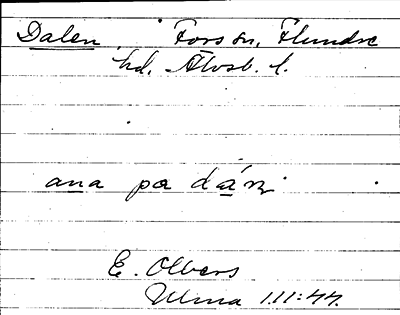 Dalen, Fors sn, Flundre
hd, Älvsb. l.
ana pa
E. Olbers
Ulma 1.11:44.